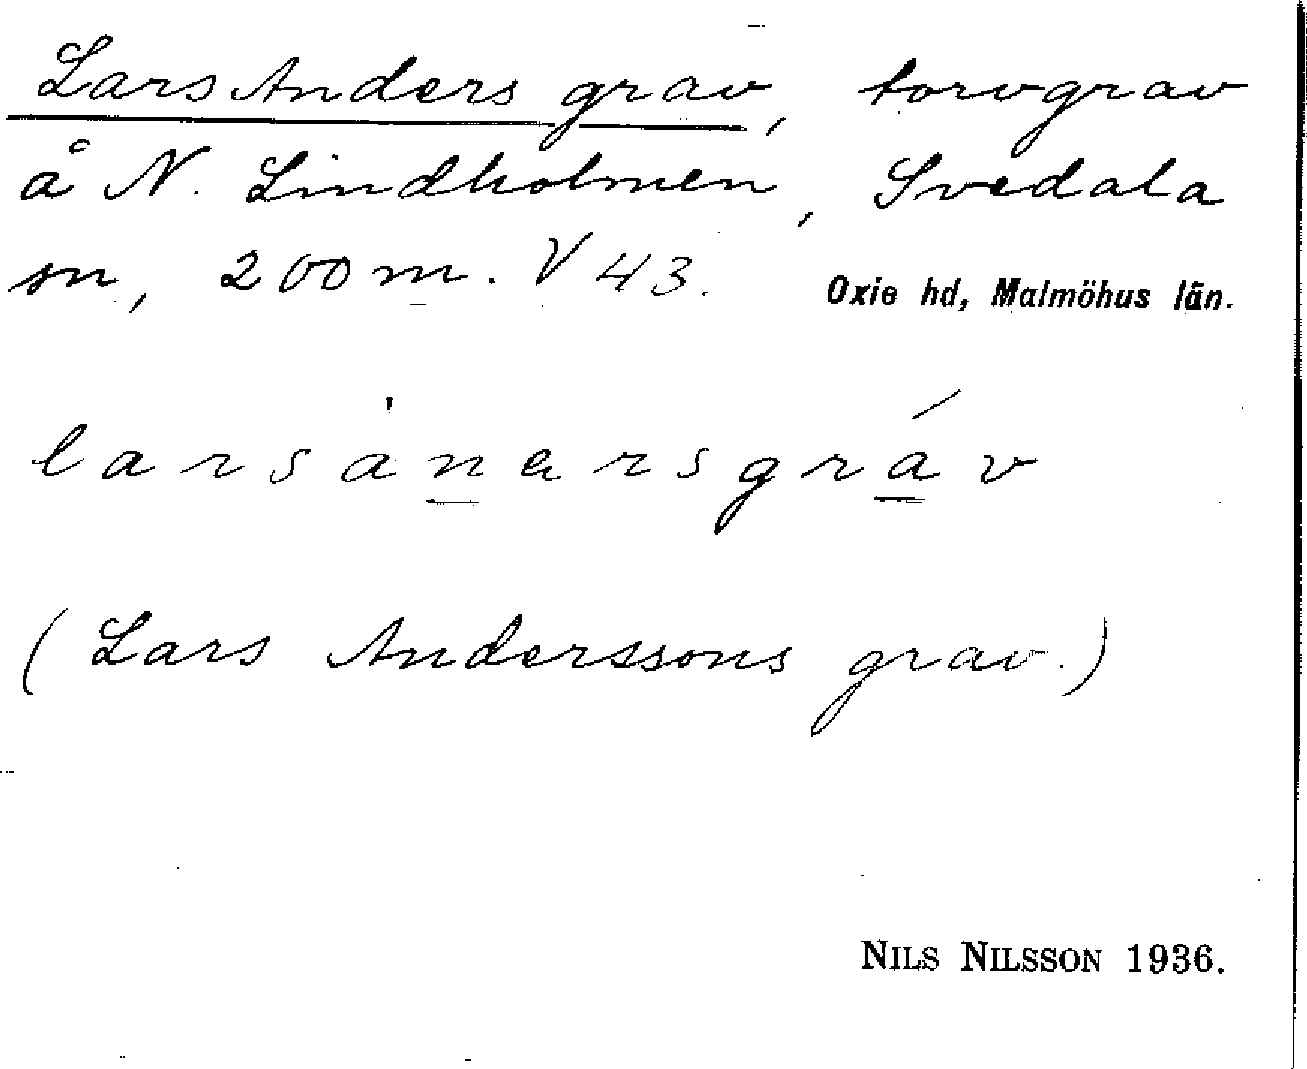 Lars Anders grav, torvgrav
å N. Lindholmen, Svedala
sn, 200 m. V 43. Oxie hd, Malmöhus län.
larsànarsgráv
(Lars Anderssons grav.)
NILS NILSSON 1936.